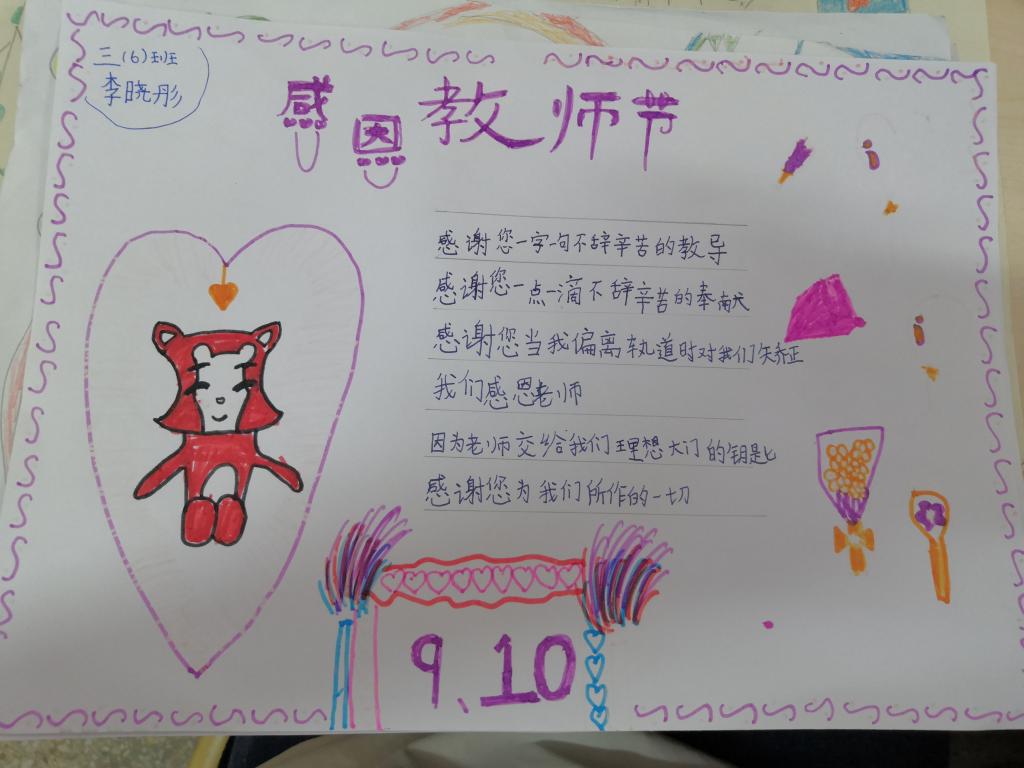 三(6)班
李晓彤
感恩教师节
感谢您一字一句不辞辛苦的教导
感谢您一点一滴不辞辛苦的奉献
感谢您当我偏离轨道时对我们矫正
我们感恩老师
因为老师交给我们理想大门的钥匙
感谢您为我们所作的一切
9.10